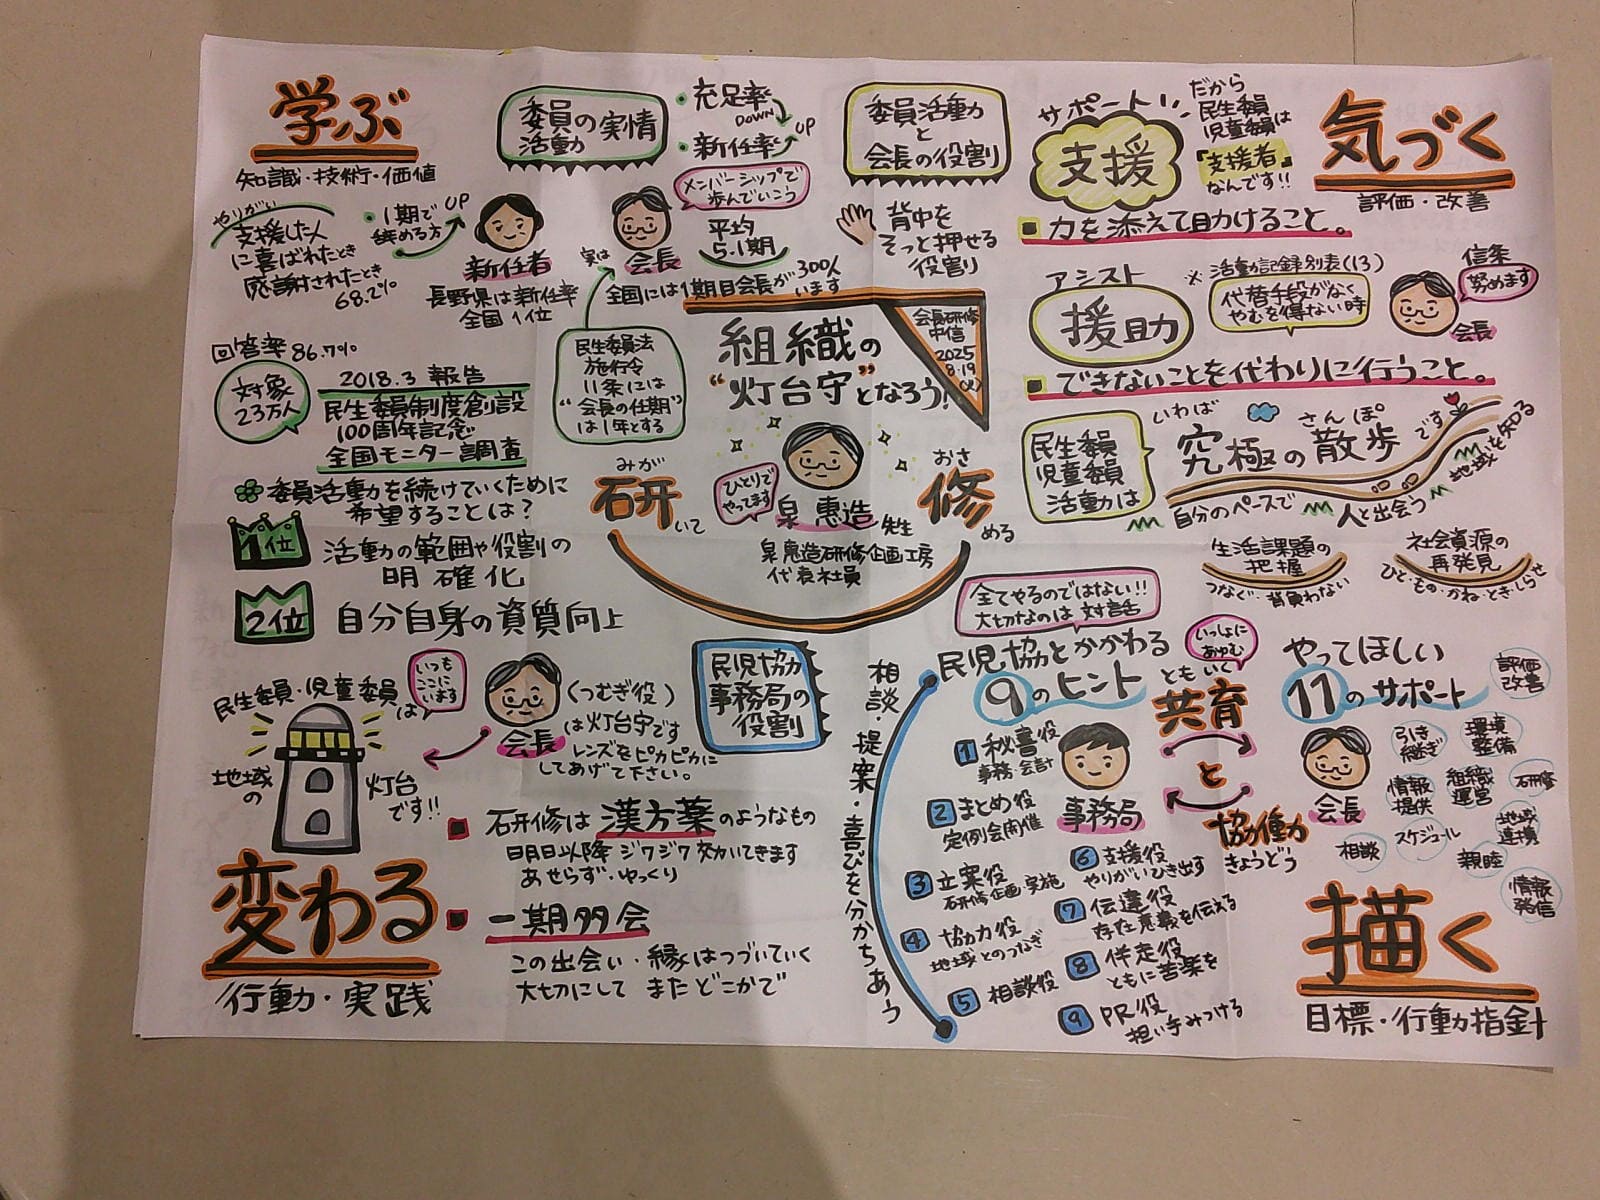 学ぶ
知識・技術・価値
やりがい
支援した人
に喜ばれたとき
感謝されたとき
68.2%
・1期で
辞める方
UP
委員の実情
活動
・充足率
DOWN
・新任率
UP
新任者
長野県は新任率
全国1位
実は
会長
メンバーシップで
歩んでいこう
平均
5.1期
全国には1期目会長が300人
います
民生委員法
施行令
11条には
“会長の任期”
は1年とする
回答率86.7%
対象
23万人
2018.3 報告
民生委員制度創設
100周年記念
全国モニター調査
委員活動を続けていくために
希望することは?
1位
活動の範囲や役割の
明確化
2位
自分自身の資質向上
委員活動
と
会長の役割
背中を
そっと押せる
役割
組織の
“灯台守”となろう!
会長研修
中信
2025
8.19
(火)
みが
研いて
ひとりで
やってます
泉 惠造 先生
泉惠造研修企画工房
代表社員
おさ
修める
気づく
評価・改善
サポート
支援
だから
民生委員
児童委員は
「支援者」
なんです!!
力を添えて助けること。
アシスト
援助
※活動記録別表(13)
代替手段がなく
やむを得ない時
信条
努めます
会長
できないことを代わりに行うこと。
民生委員
児童委員
活動は
いわば
さんぽ
究極の散歩です
自分のペースで
人と出会う
地域を知る
生活課題の
把握
つなぐ・背負わない
社会資源の
再発見
ひと・もの・かね・とき・しらせ
民生委員・児童委員は
いつも
ここに
います
地域の
灯台
です!!
会長
(つむぎ役)
は灯台守です
レンズをピカピカに
してあげて下さい。
研修は漢方薬のようなもの
明日以降ジワジワ効いてきます
あせらず・ゆっくり
一期多会
この出会い・縁はつづいていく
大切にして またどこかで
変わる
行動・実践
民児協
事務局の
役割
相談・提案・喜びを分かちあう
全てやるのではない!!
大切なのは対話
民児協とかかわる
9のヒント
1 秘書役
事務・会計
2 まとめ役
定例会開催
3 立案役
研修企画・実施
4 協力役
地域とのつなぎ
5 相談役
6 支援役
やりがいひき出す
7 伝達役
存在意義を伝える
8 伴走役
ともに苦楽を
9 PR役
担い手みつける
事務局
いっしょに
あゆむ
ともいく
共育
と
協働
きょうどう
やってほしい
11のサポート
会長
評価
改善
引き
継ぎ
環境
整備
情報
提供
組織
運営
研修
相談
スケジュール
地域
連携
親睦
情報
発信
描く
目標・行動指針